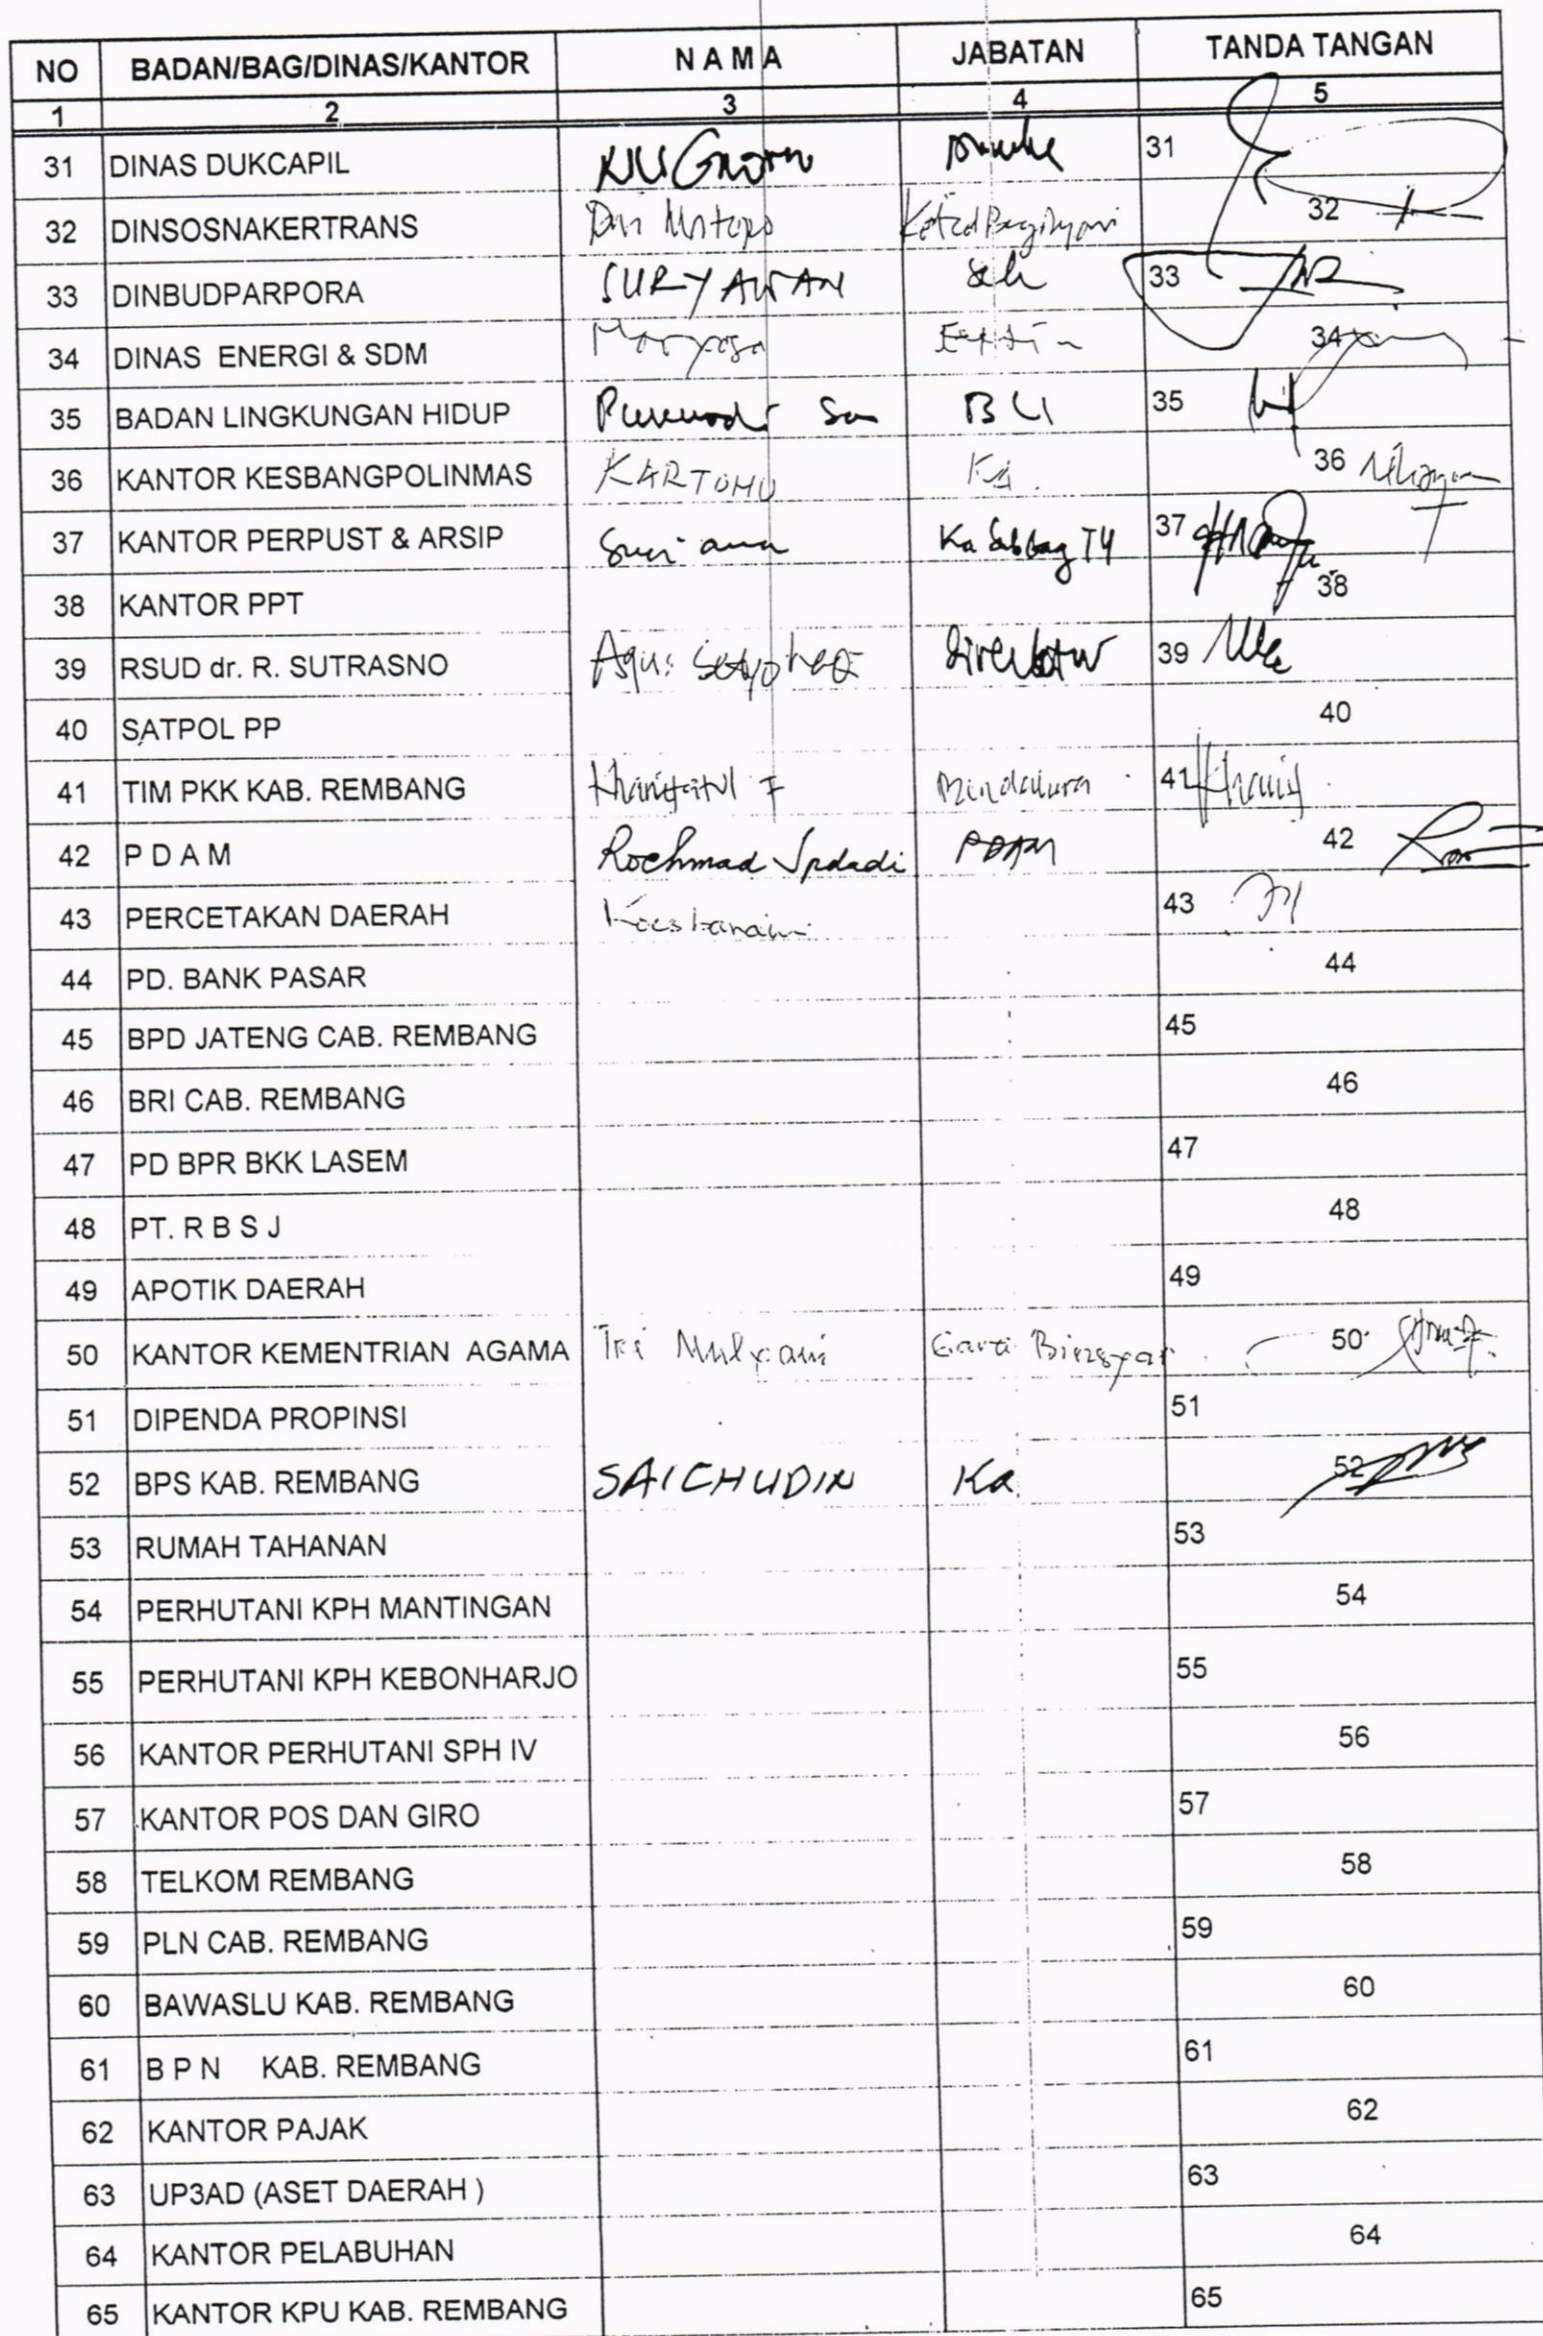 NO BADAN/BAG/DINAS/KANTOR N A M A JABATAN TANDA TANGAN
1 2 3 4 5
31 DINAS DUKCAPIL 31
32 DINSOSNAKERTRANS 32
33 DINBUDPARPORA SURYAWAN 33
34 DINAS ENERGI & SDM 34
35 BADAN LINGKUNGAN HIDUP 35
36 KANTOR KESBANGPOLINMAS KARTONO Ka. 36
37 KANTOR PERPUST & ARSIP Ka Subbag TU 37
38 KANTOR PPT 38
39 RSUD dr. R. SUTRASNO Agus Direktur 39
40 SATPOL PP 40
41 TIM PKK KAB. REMBANG 41
42 P D A M Rochmad PDAM 42
43 PERCETAKAN DAERAH 43
44 PD. BANK PASAR 44
45 BPD JATENG CAB. REMBANG 45
46 BRI CAB. REMBANG 46
47 PD BPR BKK LASEM 47
48 PT. R B S J 48
49 APOTIK DAERAH 49
50 KANTOR KEMENTRIAN AGAMA Tri Mulyani 50
51 DIPENDA PROPINSI 51
52 BPS KAB. REMBANG SAICHUDIN Ka 52
53 RUMAH TAHANAN 53
54 PERHUTANI KPH MANTINGAN 54
55 PERHUTANI KPH KEBONHARJO 55
56 KANTOR PERHUTANI SPH IV 56
57 KANTOR POS DAN GIRO 57
58 TELKOM REMBANG 58
59 PLN CAB. REMBANG 59
60 BAWASLU KAB. REMBANG 60
61 B P N KAB. REMBANG 61
62 KANTOR PAJAK 62
63 UP3AD (ASET DAERAH ) 63
64 KANTOR PELABUHAN 64
65 KANTOR KPU KAB. REMBANG 65